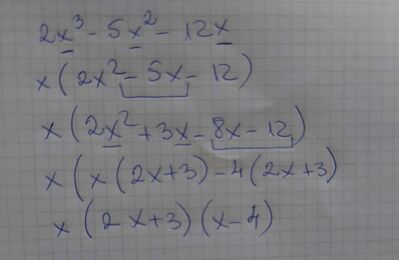 2x³ - 5x² - 12x
x(2x² - 5x - 12)
x(2x² + 3x - 8x - 12)
x(x(2x+3) - 4(2x+3)
x(2x+3)(x-4)